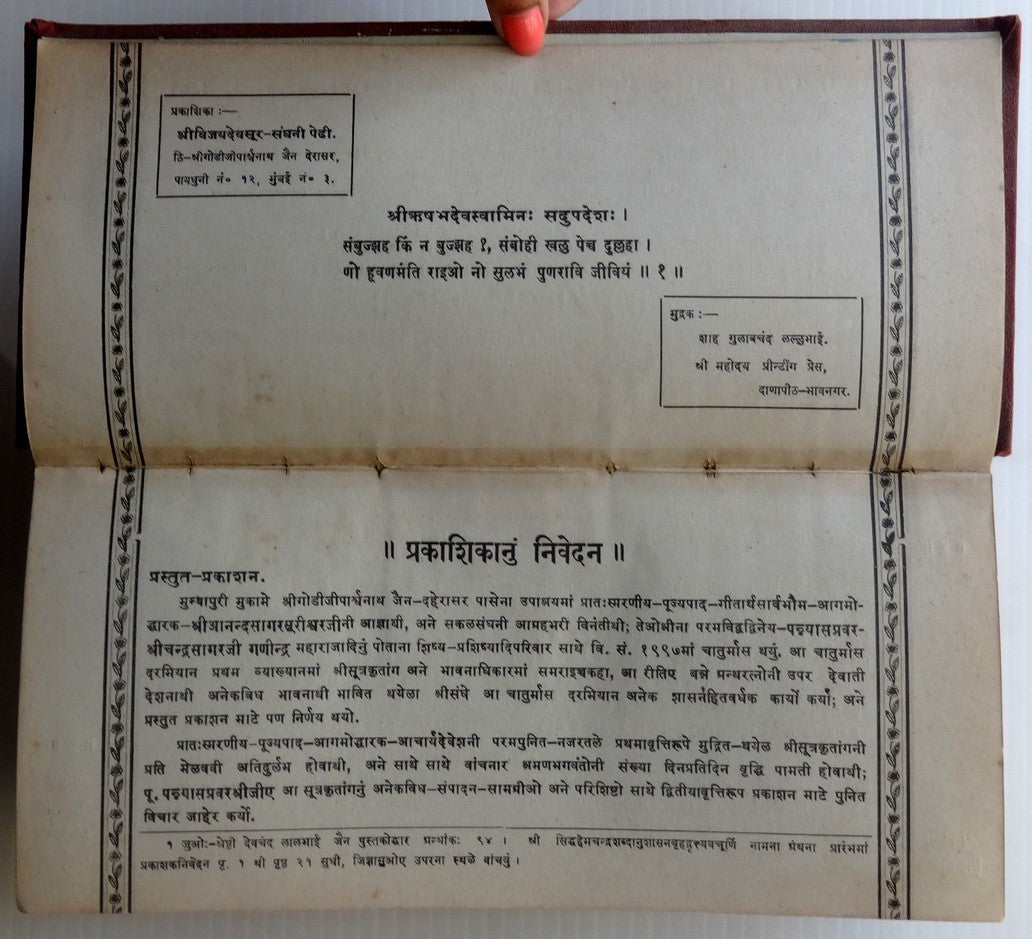 प्रकाशिका :—
श्रीविजयदेवसूर-संघनी पेढी.
ठि-श्रीगोडीजीपार्श्वनाथ जैन देरासर,
पायधुनी नं० १२, मुंबई नं० ३.
श्रीऋषभदेवस्वामिनः सदुपदेशः ।
संबुज्झह किं न बुज्झह ?, संबोही खलु पेच्च दुल्लहा ।
णो हूवणमंति राइओ नो सुलभं पुणरावि जीवियं ॥ १ ॥
मुद्रक :—
शाह गुलाबचंद लल्लुभाई.
श्री महोदय प्रीन्टींग प्रेस,
दाणापीठ-भावनगर.
॥ प्रकाशिकानुं निवेदन ॥
प्रस्तुत-प्रकाशन.
मुम्बापुरी मुकामे श्रीगोडीजीपार्श्वनाथ जैन-दहेरासर पासेना उपाश्रयमां प्रातःस्मरणीय-पूज्यपाद-गीतार्थसार्वभौम-आगमो-
द्धारक-श्रीआनन्दसागरसूरीश्वरजीनी आज्ञाथी, अने सकलसंघनी आग्रहभरी विनंतीथी; तेओश्रीना परमविद्वद्विनेय-पन्न्यासप्रवर-
श्रीचन्द्रसागरजी गणीन्द्र महाराजादिनुं पोताना शिष्य-प्रशिष्यादिपरिवार साथे वि. सं. १९९७मां चातुर्मास थयुं. आ चातुर्मास
दरमियान प्रथम व्याख्यानमां श्रीसूत्रकृतांग अने भावनाधिकारमां समराइच्चकहा, आ रीतिए बन्ने ग्रन्थरत्नोनी उपर देवाती
देशनाथी अनेकविध भावनाथी भावित थयेला श्रीसंघे आ चातुर्मास दरमियान अनेक शासनहितवर्धक कार्यो कर्यां; अने
प्रस्तुत प्रकाशन माटे पण निर्णय थयो.
प्रातःस्मरणीय-पूज्यपाद-आगमोद्धारक-आचार्यदेवेशनी परमपुनित-नजरतले प्रथमावृत्तिरूपे मुद्रित-थयेल श्रीसूत्रकृतांगनी
प्रति मेळववी अतिदुर्लभ होवाथी, अने साथे साथे वांचनार श्रमणभगवंतोनी संख्या दिनप्रतिदिन वृद्धि पामती होवाथी;
पू. पन्न्यासप्रवरश्रीजीए आ सूत्रकृतांगनुं अनेकविध-संपादन-सामग्रीओ अने परिशिष्टो साथे द्वितीयावृत्तिरूप प्रकाशन माटे पुनित
विचार जाहेर कर्यो.
१ जुओः-श्रेष्ठी देवचंद लालभाई जैन पुस्तकोद्धार ग्रन्थांकः ९४ । श्री सिद्धहेमचन्द्रशब्दानुशासनबृहद्वृत्त्यवचूर्णि नामना ग्रंथना प्रारंभमां
प्रकाशकनिवेदन पृ. १ थी पृष्ठ २१ सुधी, जिज्ञासुओए उपरना स्थळे वांचवुं ।